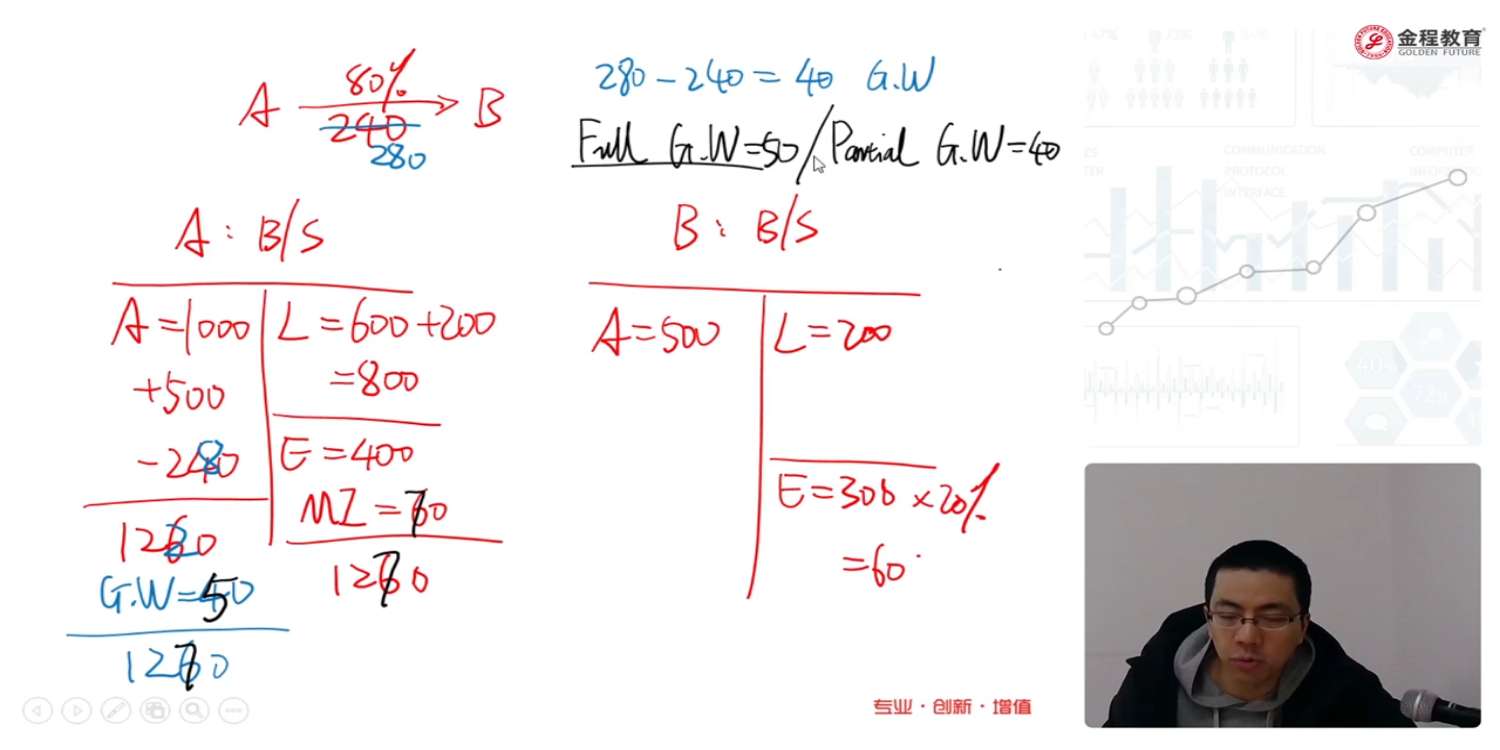 金程教育
GOLDEN FUTURE
80%
A → B
240
280
280 - 240 = 40 G.W
Full G.W=50 / Partial G.W=40
A : B/S
A=1000
+500
-280
1220
G.W=50
1270
L=600+200
=800
E=400
MI=70
1270
B : B/S
A=500
L=200
E=300 ×20%
=60
COMMUNICATION
PROTOCOL
INTERFACE
COMPUTER
40%
72%
专业·创新·增值